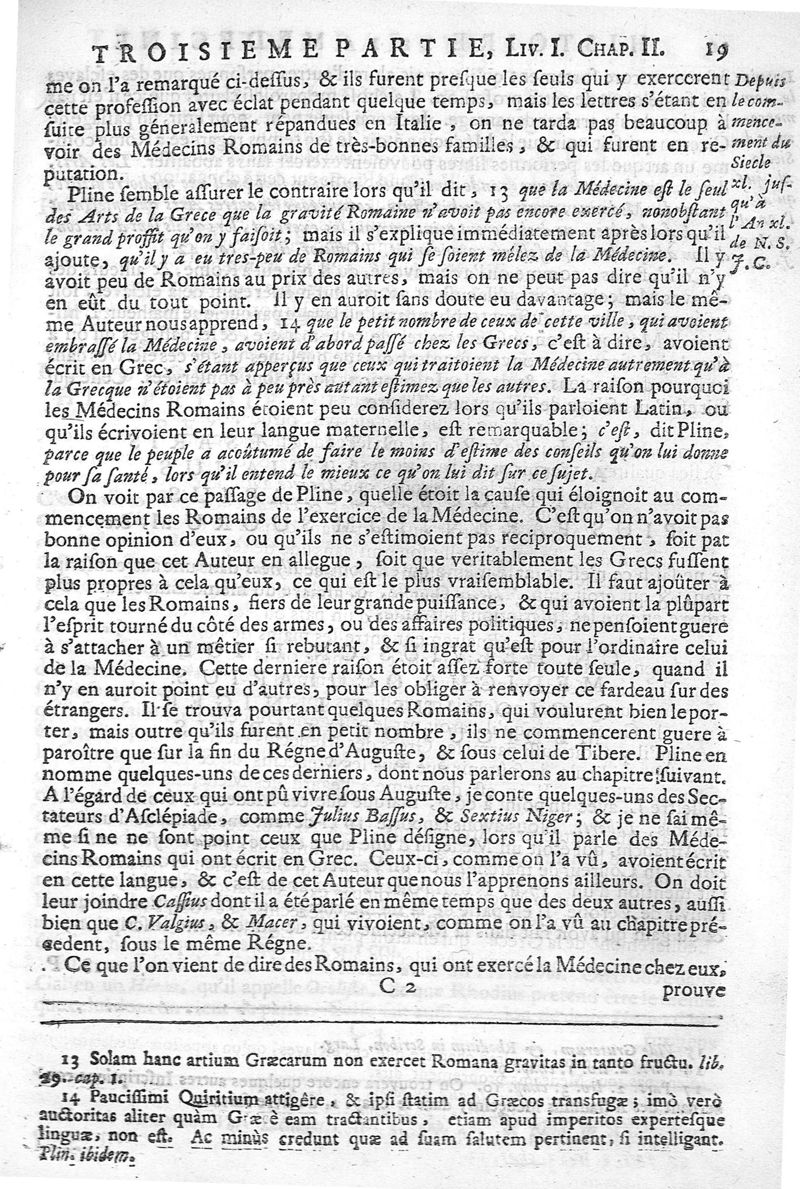 TROISIEME PARTIE, LIV. I. CHAP. II. 19
me on l'a remarqué ci-deſſus, & ils furent preſque les ſeuls qui y exercerent
cette profeſſion avec éclat pendant quelque temps, mais les lettres s'étant en
ſuite plus géneralement répandues en Italie, on ne tarda pas beaucoup à
voir des Médecins Romains de très-bonnes familles, & qui furent en re-
putation.
Depuis
le com-
mence-
ment du
Siecle
xl. juſ-
qu'à
l'An xl.
de N. S.
J. C.
Pline ſemble aſſurer le contraire lors qu'il dit, 13 que la Médecine eſt le ſeul
des Arts de la Grece que la gravité Romaine n'avoit pas encore exercé, nonobſtant
le grand proffit qu'on y faiſoit; mais il s'explique immédiatement après lors qu'il
ajoute, qu'il y a eu tres-peu de Romains qui ſe ſoient mêlez de la Médecine. Il y
avoit peu de Romains au prix des autres, mais on ne peut pas dire qu'il n'y
en eût du tout point. Il y en auroit ſans doute eu davantage; mais le mê-
me Auteur nous apprend, 14 que le petit nombre de ceux de cette ville, qui avoient
embraſſé la Médecine, avoient d'abord paſſé chez les Grecs, c'eſt à dire, avoient
écrit en Grec, s'étant apperçus que ceux qui traitoient la Médecine autrement qu'à
la Grecque n'étoient pas à peu près autant eſtimez que les autres. La raiſon pourquoi
les Médecins Romains étoient peu conſiderez lors qu'ils parloient Latin, ou
qu'ils écrivoient en leur langue maternelle, eſt remarquable; c'eſt, dit Pline,
parce que le peuple a acoûtumé de faire le moins d'eſtime des conſeils qu'on lui donne
pour ſa ſanté, lors qu'il entend le mieux ce qu'on lui dit ſur ce ſujet.
On voit par ce paſſage de Pline, quelle étoit la cauſe qui éloignoit au com-
mencement les Romains de l'exercice de la Médecine. C'eſt qu'on n'avoit pas
bonne opinion d'eux, ou qu'ils ne s'eſtimoient pas reciproquement, ſoit pat
la raiſon que cet Auteur en allegue, ſoit que veritablement les Grecs fuſſent
plus propres à cela qu'eux, ce qui eſt le plus vraiſemblable. Il faut ajoûter à
cela que les Romains, fiers de leur grande puiſſance, & qui avoient la plûpart
l'eſprit tourné du côté des armes, ou des affaires politiques, ne penſoient guere
à s'attacher à un mêtier ſi rebutant, & ſi ingrat qu'eſt pour l'ordinaire celui
de la Médecine. Cette derniere raiſon étoit aſſez forte toute ſeule, quand il
n'y en auroit point eu d'autres, pour les obliger à renvoyer ce fardeau ſur des
étrangers. Il ſe trouva pourtant quelques Romains, qui voulurent bien le por-
ter, mais outre qu'ils furent en petit nombre, ils ne commencerent guere à
paroître que ſur la fin du Régne d'Auguſte, & ſous celui de Tibere. Pline en
nomme quelques-uns de ces derniers, dont nous parlerons au chapitre ſuivant.
A l'égard de ceux qui ont pû vivre ſous Auguſte, je conte quelques-uns des Sec-
tateurs d'Aſclépiade, comme Julius Baſſus, & Sextius Niger; & je ne ſai mê-
me ſi ne ne ſont point ceux que Pline déſigne, lors qu'il parle des Méde-
cins Romains qui ont écrit en Grec. Ceux-ci, comme on l'a vû, avoient écrit
en cette langue, & c'eſt de cet Auteur que nous l'apprenons ailleurs. On doit
leur joindre Caſſius dont il a été parlé en même temps que des deux autres, auſſi
bien que C. Valgius, & Macer, qui vivoient, comme on l'a vû au chapitre pré-
cedent, ſous le même Régne.
Ce que l'on vient de dire des Romains, qui ont exercé la Médecine chez eux,
C 2 prouve
13 Solam hanc artium Græcarum non exercet Romana gravitas in tanto fructu. lib.
29. cap. 1.
14 Pauciſſimi Quiritium attigêre, & ipſi ſtatim ad Græcos transfugæ; imò verò
auctoritas aliter quàm Græcè eam tractantibus, etiam apud imperitos experteſque
linguæ, non eſt. Ac minùs credunt quæ ad ſuam ſalutem pertinent, ſi intelligant.
Plin. ibidem.